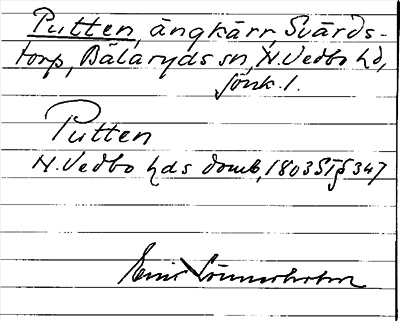 Putten, ängkärr, Svärds-
torp, Bälaryds sn, N. Vedbo hd,
Jönk. l.
Putten
N. Vedbo hds domb, 1803 ST § 347
Emil Lönnerholm